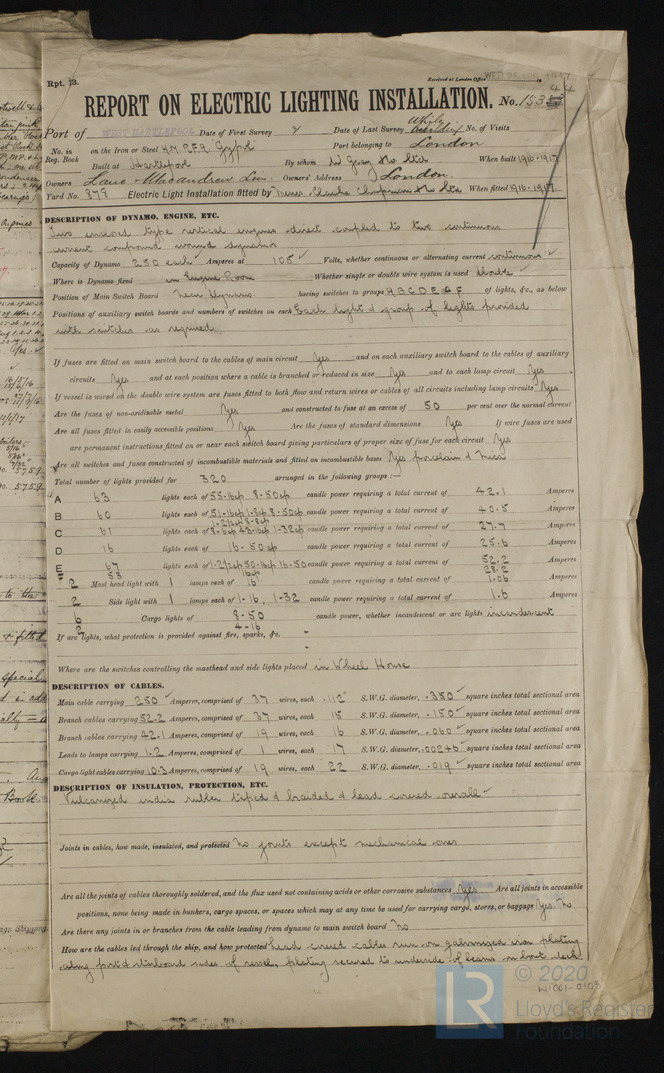 Rpt. 13.
Received at London Office
REPORT ON ELECTRIC LIGHTING INSTALLATION. No. 153
Port of WEST HARTLEPOOL Date of First Survey Date of Last Survey No. of Visits
No. in Reg. Book on the Iron or Steel Port belonging to London
Built at Hartlepool By whom W Gray & Co Ltd When built 1916-1917
Owners Lane & Macandrew Lim Owners' Address London.
Yard No. 879 Electric Light Installation fitted by Messrs Clarke Chapman & Co Ltd When fitted 1916-1917
DESCRIPTION OF DYNAMO, ENGINE, ETC.
Two enclosed type vertical engines direct coupled to two continuous
current compound wound dynamos
Capacity of Dynamo 250 each Amperes at 105 Volts, whether continuous or alternating current continuous
Where is Dynamo fixed in Engine Room Whether single or double wire system is used double
Position of Main Switch Board near dynamo having switches to groups A B C D E & F of lights, &c., as below
Positions of auxiliary switch boards and numbers of switches on each Each light & group of lights provided
with switches as required
If fuses are fitted on main switch board to the cables of main circuit Yes and on each auxiliary switch board to the cables of auxiliary
circuits Yes and at each position where a cable is branched or reduced in size Yes and to each lamp circuit Yes
If vessel is wired on the double wire system are fuses fitted to both flow and return wires or cables of all circuits including lamp circuits Yes
Are the fuses of non-oxidizable metal Yes and constructed to fuse at an excess of 50 per cent over the normal current
Are all fuses fitted in easily accessible positions Yes Are the fuses of standard dimensions Yes If wire fuses are used
are permanent instructions fitted on or near each switch board giving particulars of proper size of fuse for each circuit Yes
Are all switches and fuses constructed of incombustible materials and fitted on incombustible bases Yes porcelain & mica
Total number of lights provided for 320 arranged in the following groups :—
A 63 lights each of 55-16cp 8-50cp candle power requiring a total current of 42.1 Amperes
B 60 lights each of 51-16cp 1-8cp 8-50cp candle power requiring a total current of 40.5 Amperes
C 61 lights each of 43-16cp 1-32cp candle power requiring a total current of 27.7 Amperes
D 16 lights each of 16-50cp candle power requiring a total current of 25.6 Amperes
E 67 lights each of 50-16cp 16-50 candle power requiring a total current of 52.2 Amperes
F 53 16cp 28.2
2 Mast head light with 1 lamps each of 16 candle power requiring a total current of 1.06 Amperes
2 Side light with 1 lamps each of 1-16, 1-32 candle power requiring a total current of 1.6 Amperes
6 Cargo lights of 8-50 candle power, whether incandescent or arc lights incandescent
4-16
If arc lights, what protection is provided against fire, sparks, &c. -
Where are the switches controlling the masthead and side lights placed in Wheel House
DESCRIPTION OF CABLES.
Main cable carrying 250 Amperes, comprised of 37 wires, each .112" S.W.G. diameter, .350 square inches total sectional area
Branch cables carrying 52.2 Amperes, comprised of 37 wires, each 15 S.W.G. diameter, .150 square inches total sectional area
Branch cables carrying 42.1 Amperes, comprised of 19 wires, each 16 S.W.G. diameter, .060 square inches total sectional area
Leads to lamps carrying 1.2 Amperes, comprised of 1 wires, each 17 S.W.G. diameter, .00246 square inches total sectional area
Cargo light cables carrying 10.3 Amperes, comprised of 19 wires, each 22 S.W.G. diameter, .019 square inches total sectional area
DESCRIPTION OF INSULATION, PROTECTION, ETC.
Vulcanized india rubber taped & braided & lead covered overall
Joints in cables, how made, insulated, and protected No joints except mechanical ones
Are all the joints of cables thoroughly soldered, and the flux used not containing acids or other corrosive substances Yes Are all joints in accessible
positions, none being made in bunkers, cargo spaces, or spaces which may at any time be used for carrying cargo, stores, or baggage Yes. No
Are there any joints in or branches from the cable leading from dynamo to main switch board No
How are the cables led through the ship, and how protected lead covered cables run on galvanized iron plating
along port & starboard sides of vessel, plating secured to underside of beams on boat deck
W1061-0103
© 2020
LR
Lloyd's Register
Foundation